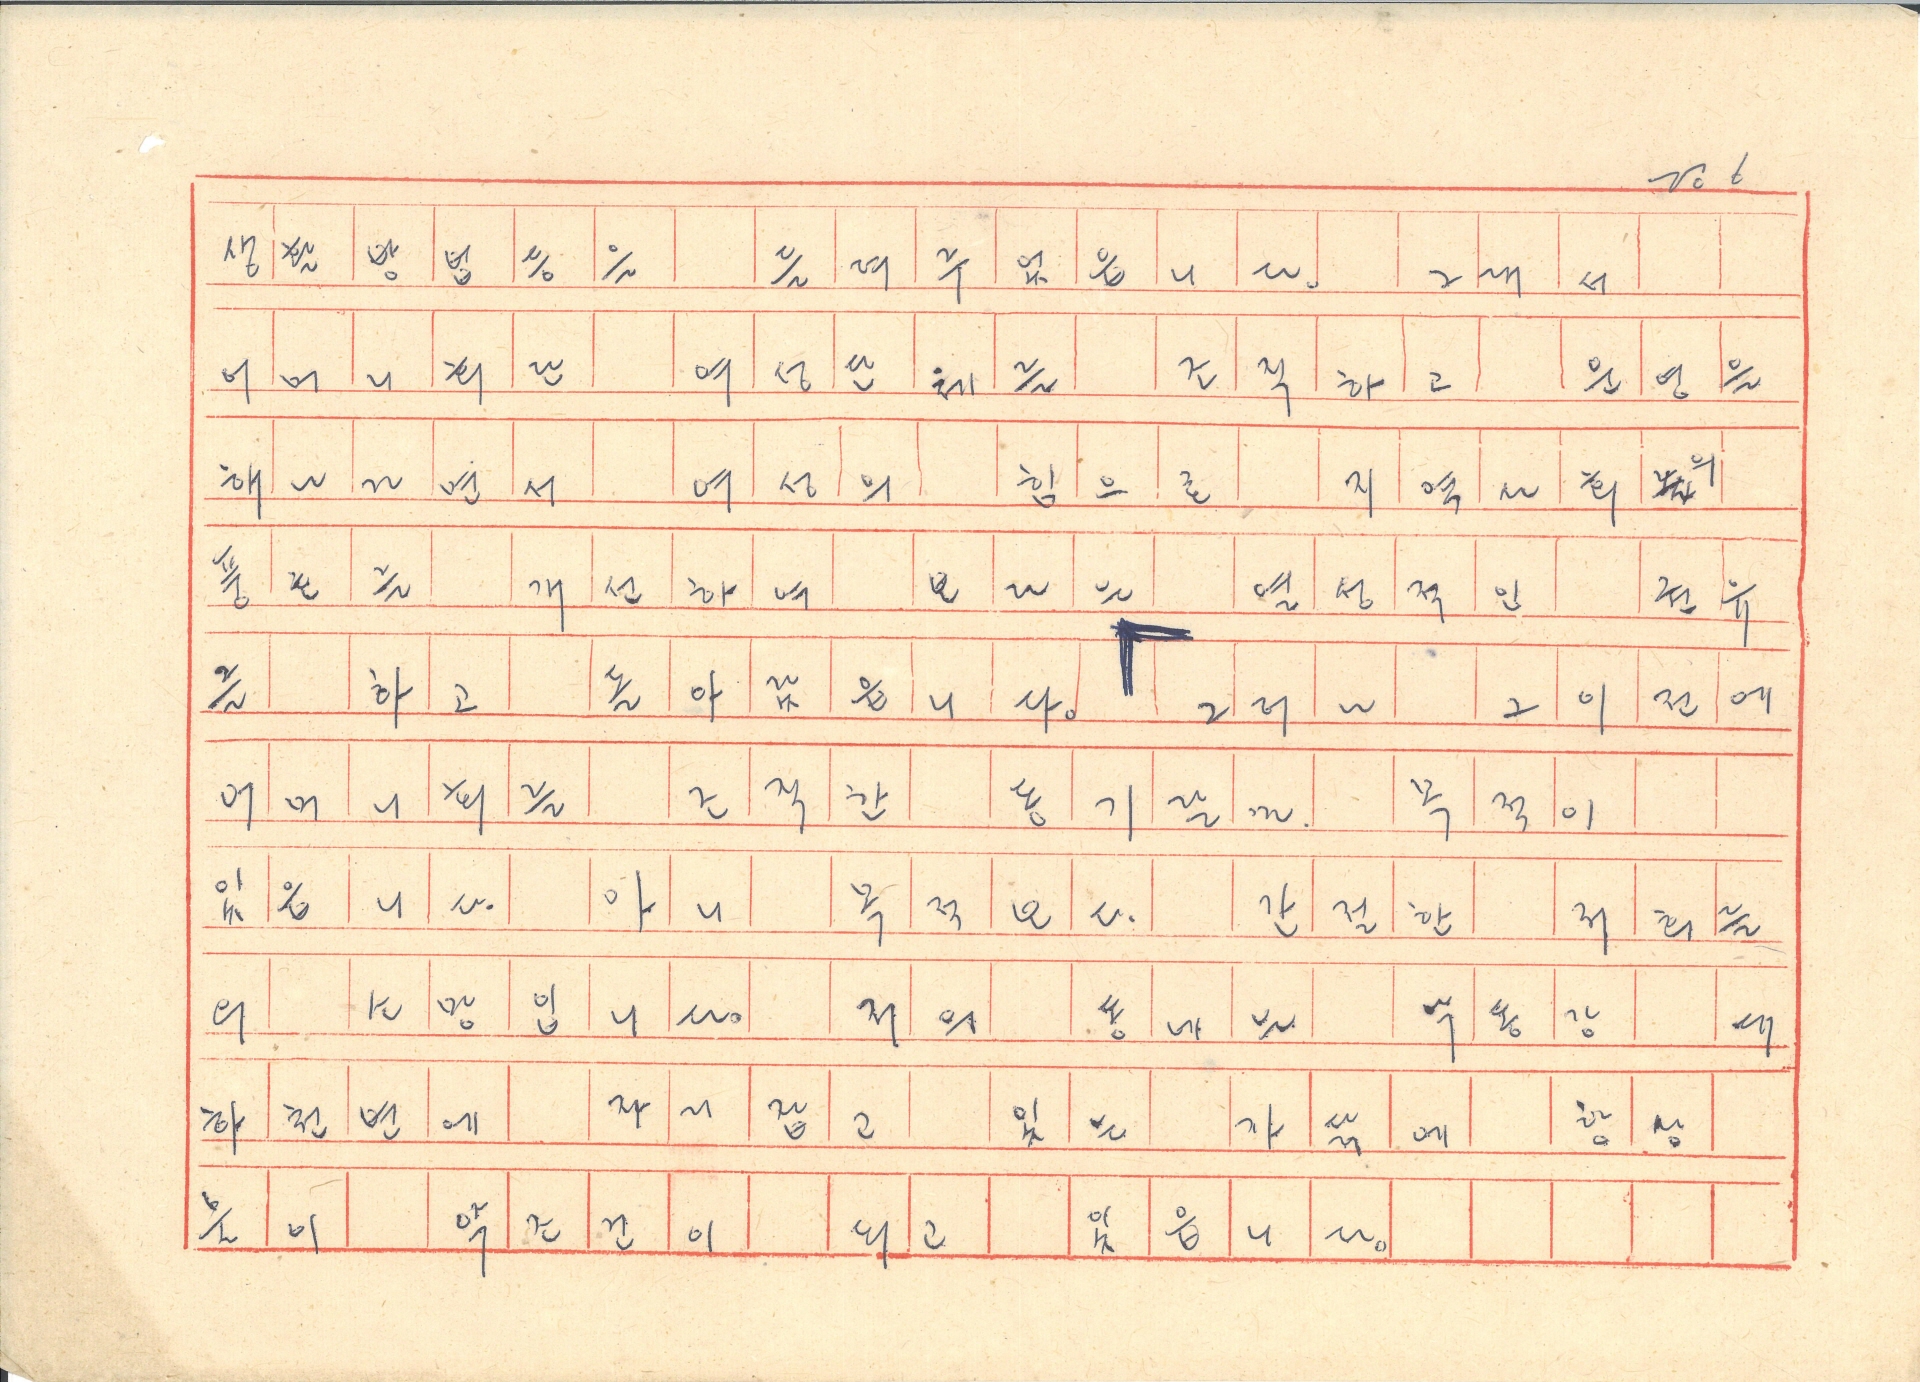 생활방법등을 들려주었읍니다. 그래서
어머니회란 여성단체를 조직하고 운영을
해나가면서 여성의 힘으로 지역사회의
풍조를 개선하여 보려는 열성적인 권유
를 하고 돌아갔읍니다. 그러나 그이전에
어머니회를 조직한 동기랄까. 목적이
있읍니다. 아니 목적보다. 간절한 저희들
의 소망입니다. 저의 동내는 낙동강
하천변에 자리잡고 있는 항상
물이 악조건이 되고 있읍니다.